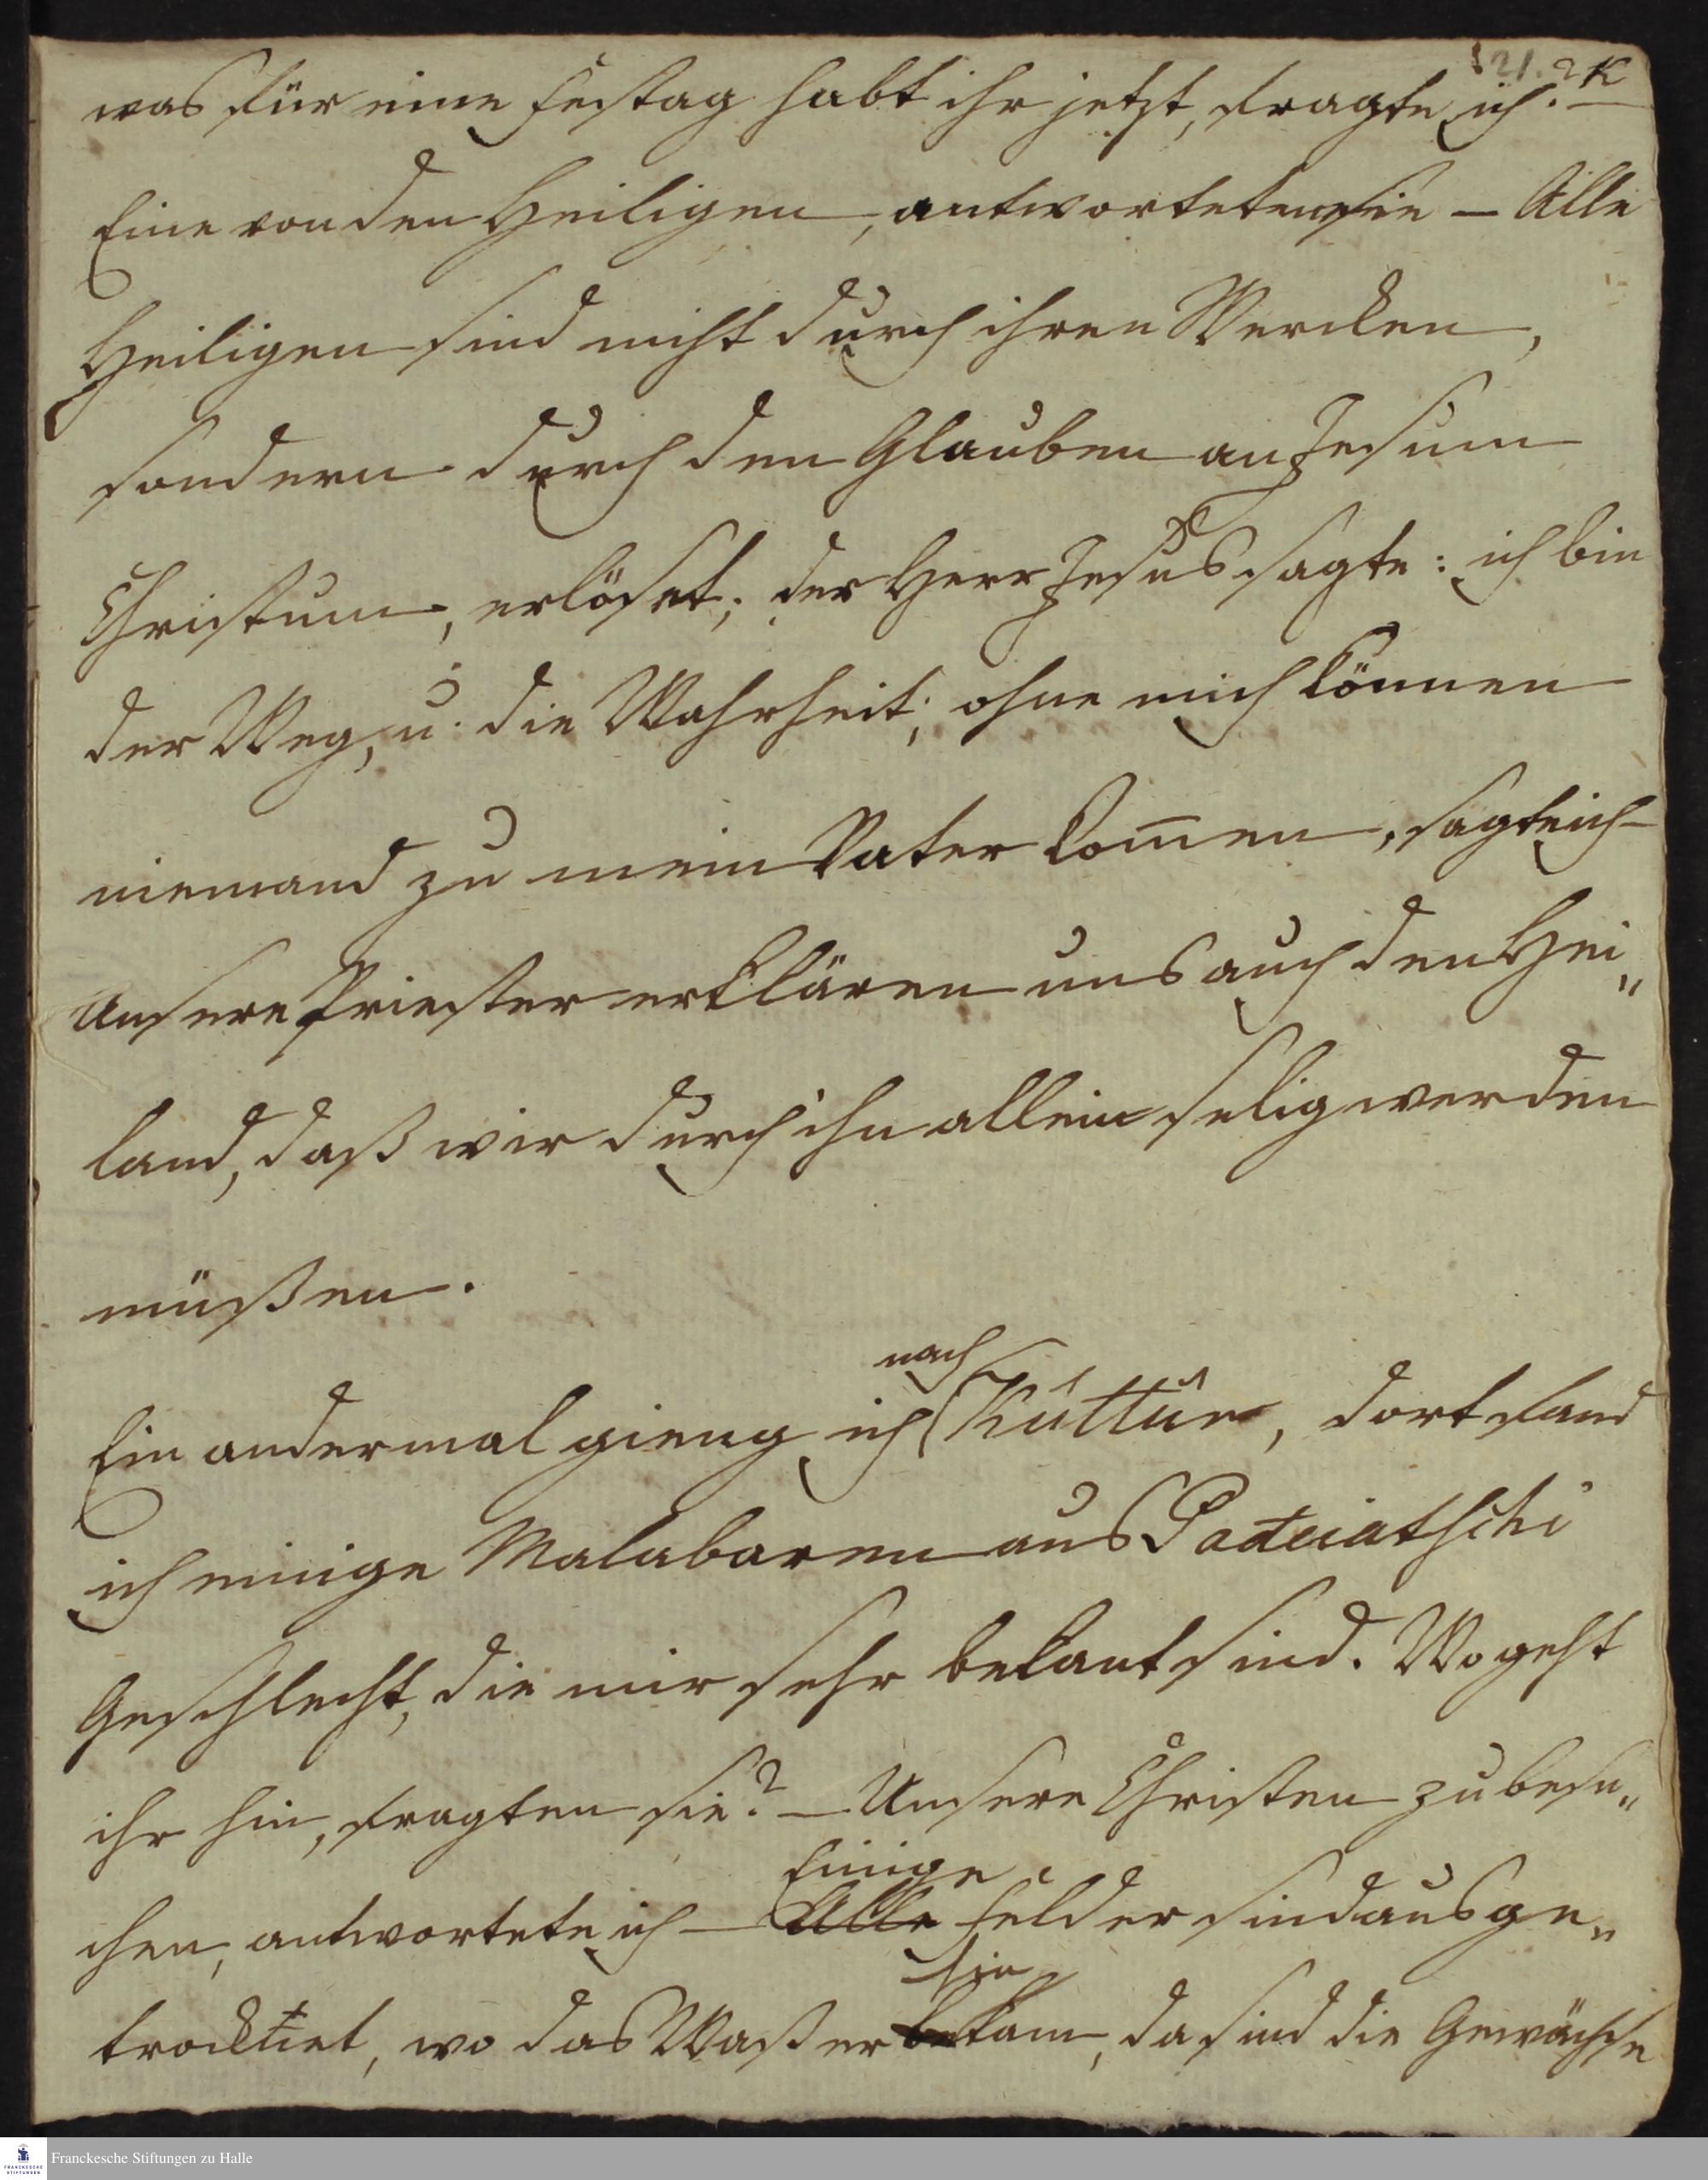 was für eine Festag habt ihr jetzt, fragte ich?
Eine von den Heiligen, antworteten sie – Alle
Heiligen sind nicht durch ihren Wercken,
sondern durch den Glauben an Jesum
Christum, erlöset; der Herr Jesus sagte: ich bin
der Weg, u. die Wahrheit; ohne mich können
niemand zu mein Vater kom̄en, sagte ich –
Unsere Priester erklären uns auch den Hei„
land, daß wir durch ihn allein selig werden
müßen.
nach
Ein andermal gieng ich Kûttûr, dort fand
ich einige Malabaren aus Padeiatschi
Geschlecht, die mir sehr bekant sind. Wo geht
ihr hin, fragten sie? – Unsere Christen zu besu„
Einige
chen, antwortete ich – Alle Felder sind ausge„
hin
trocknet, wo das Waßer bekam, da sind die Gewächse
Franckesche Stiftungen zu Halle
FRANCKESCHE
STIFTUNGEN